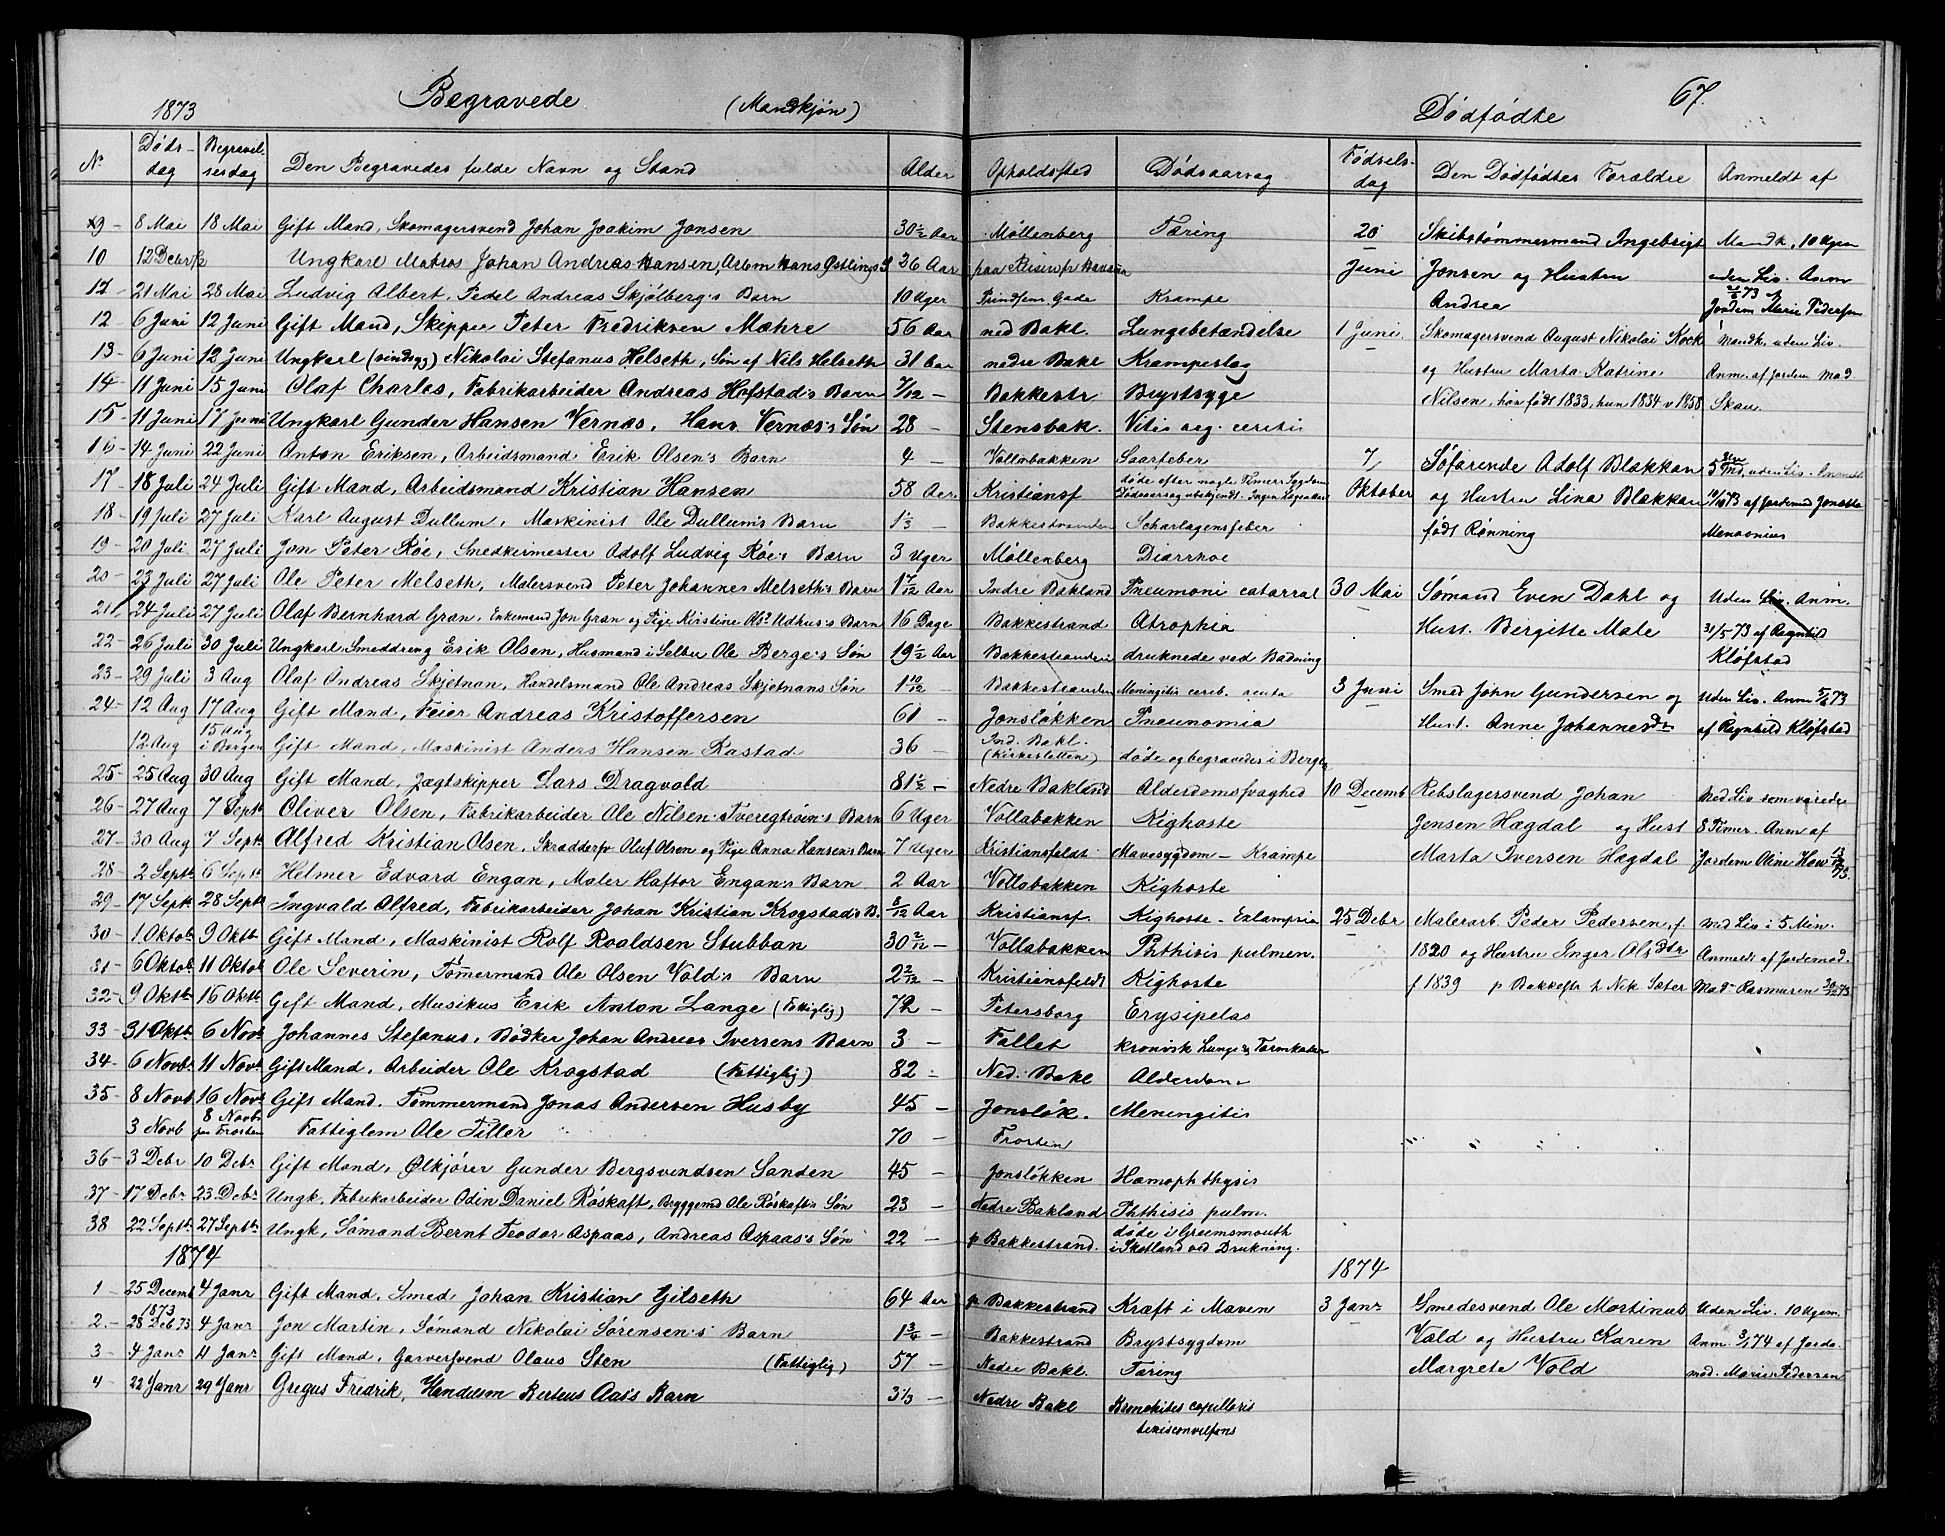 1873 Begravede (Mandkjøn) Dødfødte 67.
N. Døds-dag Begravelsesdag Den Begravedes fulde Navn og Stand Alder Opholdssted Dødsaarsag Fødselsdag Den Dødfødtes Forældre Anmeldt af
9 - 8 Mai 18 Mai Gift Mand, Skomagersvend Johan Joakim Jonsen 30 1/2 Aar Møllenberg Tæring
10 12 Debr Ungkarl Matros Johan Andreas Hansen, Arbm Hans Østlings S 36 Aar paa Reisen fr Havana
11 21 Mai 28 Mai Ludvig Albert, Pedel Andreas Skjølberg's Barn 10 Uger Prindsens Gade Krampe
12 6 Juni 12 Juni Gift Mand, Skipper Peter Fredriksen Mæhre 56 Aar ned Bakl. Lungebetændelse
13 - 6 Juni 12 Juni Ungkarl (sindsyg) Nikolai Stefanus Helseth, Søn af Nils Helseth 31 Aar nedre Bakl Krampeslag
14 - 11 Juni 15 Juni Olaf Charles, Fabrikarbeider Andreas Hofstad's Barn 7/12 - Bakkestr Brystsyge
15 - 11 Juni 17 Juni Ungkarl Gunder Hansen Vernæs, Hans Vernæs's Søn 28 - Stensbak.
16 - 14 Juni 22 Juni Anton Eriksen, Arbeidsmand Erik Olsen's Barn 4 - Vollabakken
17 - 18 Juli 24 Juli Gift Mand, Arbeidsmand Kristian Hansen 58 Aar Kristiansf døde efter nogle Timers Sygdom Dødsaarsag ubekjendt. Ingen Læge
18 - 19 Juli 27 Juli Karl August Dullum, Maskinist Ole Dullum's Barn 1 1/3 - Bakkestranden Scharlagensfeber
19 - 20 Juli 27 Juli Jon Peter Røe, Snedkermester Adolf Ludvig Røe's Barn 3 Uger Møllenberg Diarrhoe
20 - 23 Juli 27 Juli Ole Peter Melseth, Malersvend Peter Johannes Melseth's Barn 1 7/12 Aar Indre Bakland Pneumoni catarral
21 24 Juli 27 Juli Olaf Bernhard Gran, Enkemand Jon Gran og Pige Kirstine Olsd Udhus's Barn 16 Dage Bakkestrand Atrophia
22 - 26 Juli 30 Juli Ungkarl Smeddreng Erik Olsen, Husmand i Selbu Ole Berge's Søn 19 1/2 Aar Bakkestranden druknede ved Badning
23 - 29 Juli 3 Aug Olaf Andreas Skjetnan, Handelsmand Ole Andreas Skjetnans Søn 1 10/12 - Bakkestranden Meningitis cereb. acuta
24 - 12 Aug 17 Aug Gift Mand, Feier Andreas Kristoffersen 61 - Jonsløkken Pneunomia
12 Aug 15 Aug i Bergen Gift Mand, Maskinist Anders Hansen Rastad 36 - Ind. Bakl. (Kirkesletten) døde og begravedes i Bergen
25 - 25 Aug 30 Aug Gift Mand, Jægtskipper Lars Dragvold 81 1/2 - Nedre Bakland Alderdomssvaghed
26 - 27 Aug 7 Septr Oliver Olsen, Fabrikarbeider Ole Nilsen Tveregtrøin's Barn 6 Uger Vollabakken Kighoste
27 - 30 Aug 7 Septr Alfred Kristian Olsen, Skræddersv Oluf Olsen og Pige Anna Hansen's Barn 7 Uger Kristiansfeldt Mavesygdom - Krampe
28 - 2 Septr 6 Septr Helmer Edvard Engan, Maler Haftor Engan's Barn 2 Aar Vollabakken Kighoste
29 - 17 Septr 28 Septr Ingvald Alfred, Fabrikarbeider Johan Kristian Krogstad's B. 5/12 Aar Kristiansf. Kighoste - Exlampsia
30 - 1 Oktob 9 Oktbr Gift Mand, Maskinist Rolf Roaldsen Stubban 30 2/12 - Vollabakken Phthisis pulmon.
31 - 6 Oktob 11 Oktob Ole Severin, Tømmermand Ole Olsen Vold's Barn 2 2/12 - Kristiansfeldt Kighoste
32 - 9 Oktbr 16 Oktbr Gift Mand, Musikus Erik Anton Lange (Fattiglig) 72 - Petersborg Erysipelas
33 - 31 Oktbr 6 Novb Johannes Stefanus, Bødker Johan Andreas Iversens Barn 3 - Fallet kronisk Lunge og Tarmkatar
34 - 6 Novbr 11 Novbr Gift Mand, Arbeider Ole Krogstad (Fattiglig) 82 - Ned. Bakl Alderdom
35 - 8 Novb 16 Novb Gift Mand, Tømmermand Jonas Andersen Husby 45 - Jonsløk. Meningitis
3 Novb 8 Novbr paa Frosten Fattiglem Ole Tiller 70 - Frosten
36 - 3 Debr 10 Debr Gift Mand, Ølkjører Gunder Bergsvendsen Sanden 45 - Jonsløkken Hæmophthysis
37 - 17 Debr 23 Debr Ungk, Fabrikarbeider Odin Daniel Røskaft, Byggemd Ole Røskaft's Søn 23 - Nedre Bakland Phthisis pulm.
38 22 Septbr 27 Septbr Ungk, Sømand Bernt Teodor Aspaas, Andreas Aspaas's Søn 22 - p Bakkestrand. døde i Greemsmouth i Skotland ved Drukning.
1874
1 25 Decemb 1873 4 Janr Gift Mand, Smed Johan Kristian Gilseth 64 Aar p Bakkestrand Kræft i Maven
2 - 28 Deb 73 4 Janr Jon Martin, Sømand Nikolai Sørensen's Barn 1 3/4 - Bakkestrand Brystsygdom
3 - 4 Janr 11 Janr Gift Mand, Garversvend Olaus Sten (Fattiglig) 57 - Nedre Bakl. Tæring
4 - 22 Janr 29 Janr Gregus Fredrik, Handelsm Berteus Aas's Barn 3 1/3 - Nedre Bakl Bronchites capillaris
20 Juni Skibstømmermand Ingebrigt Jonsen og Hustru Andrea Mandk, 10 Ugen uden Liv. Anm 21/6 73 af Jordem Marie Pedersen
1 Juni. Skomagersvend August Nikolai Kock og Hustru Marta Katrine Nilsen, han født 1833, hun 1834 v 1858 Mandk. uden Liv. Anm. af Jordem Mad Skau.
7 Oktober Søfarende Adolf Blækkan og Hustru Lina Blækkan født Rønning uden Liv. Anmeldt af Jordemod Jonette
30 Mai Sømand Even Dahl og Hust. Birgitte Male Uden Liv. Anm. 31/5 73 af Ragnhild Kløfstad
3 Juni Smed John Gundersen og Hust. Anne Johannesdr Uden Liv. Anm 5/6 73 af Ragnhild Kløfstad
10 Decemb Rebslagersvend Johan Jensen Hægdal og Hust Marta Iversen Hægdal Med Liv som varede 8 Timer. Anm af Jordem Oline How
25 Debr Malerarb. Peder Pedersen, f. 1820 og Hustru Inger Olsdtr f 1839 p Bakkestr t Nik. Sæter med Liv i 5 Min. Anmeldt af Jordemod. Mad Rasmusen 30/12 73
1874
3 Janr Smedesvend Ole Martinus Vold og Hustru Karen Margrete Vold Uden Liv. 10 Ugen. Anm. 3/1 74 af Jordemod. Marie Pedersen